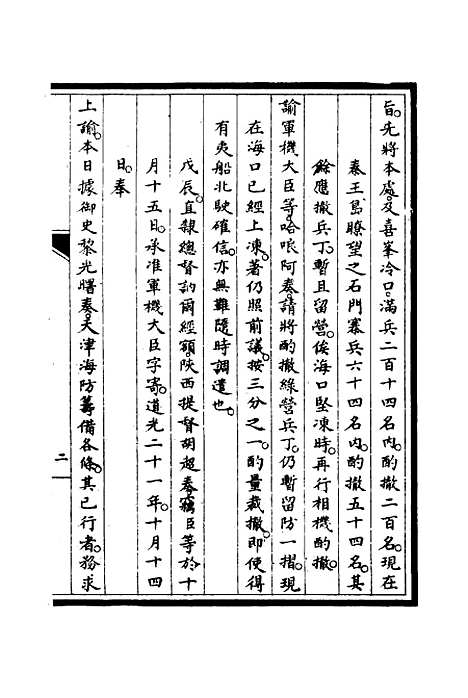 旨。先將本處及喜峯冷口。滿兵二百十四名內。酌撤二百名。現在
秦王島瞭望之石門寨兵六十四名內。酌撤五十四名。其
餘應撤兵丁。暫且留營。俟海口堅凍時。再行相機酌撤。
諭軍機大臣等。哈哴阿奏。請將酌撤綠營兵丁。仍暫留防一摺。現
在海口已經上凍。著仍照前議。按三分之一。酌量裁撤。即使得
有夷船北駛確信。亦無難隨時調遣也。
戊辰。直隸總督訥爾經額。陝西提督胡超奏。竊臣等於十
月十五日。承准軍機大臣字寄。道光二十一年十月十四
日。奉
上諭。本日據御史黎光曙奏。天津海防籌備各條。其已行者。務求
二